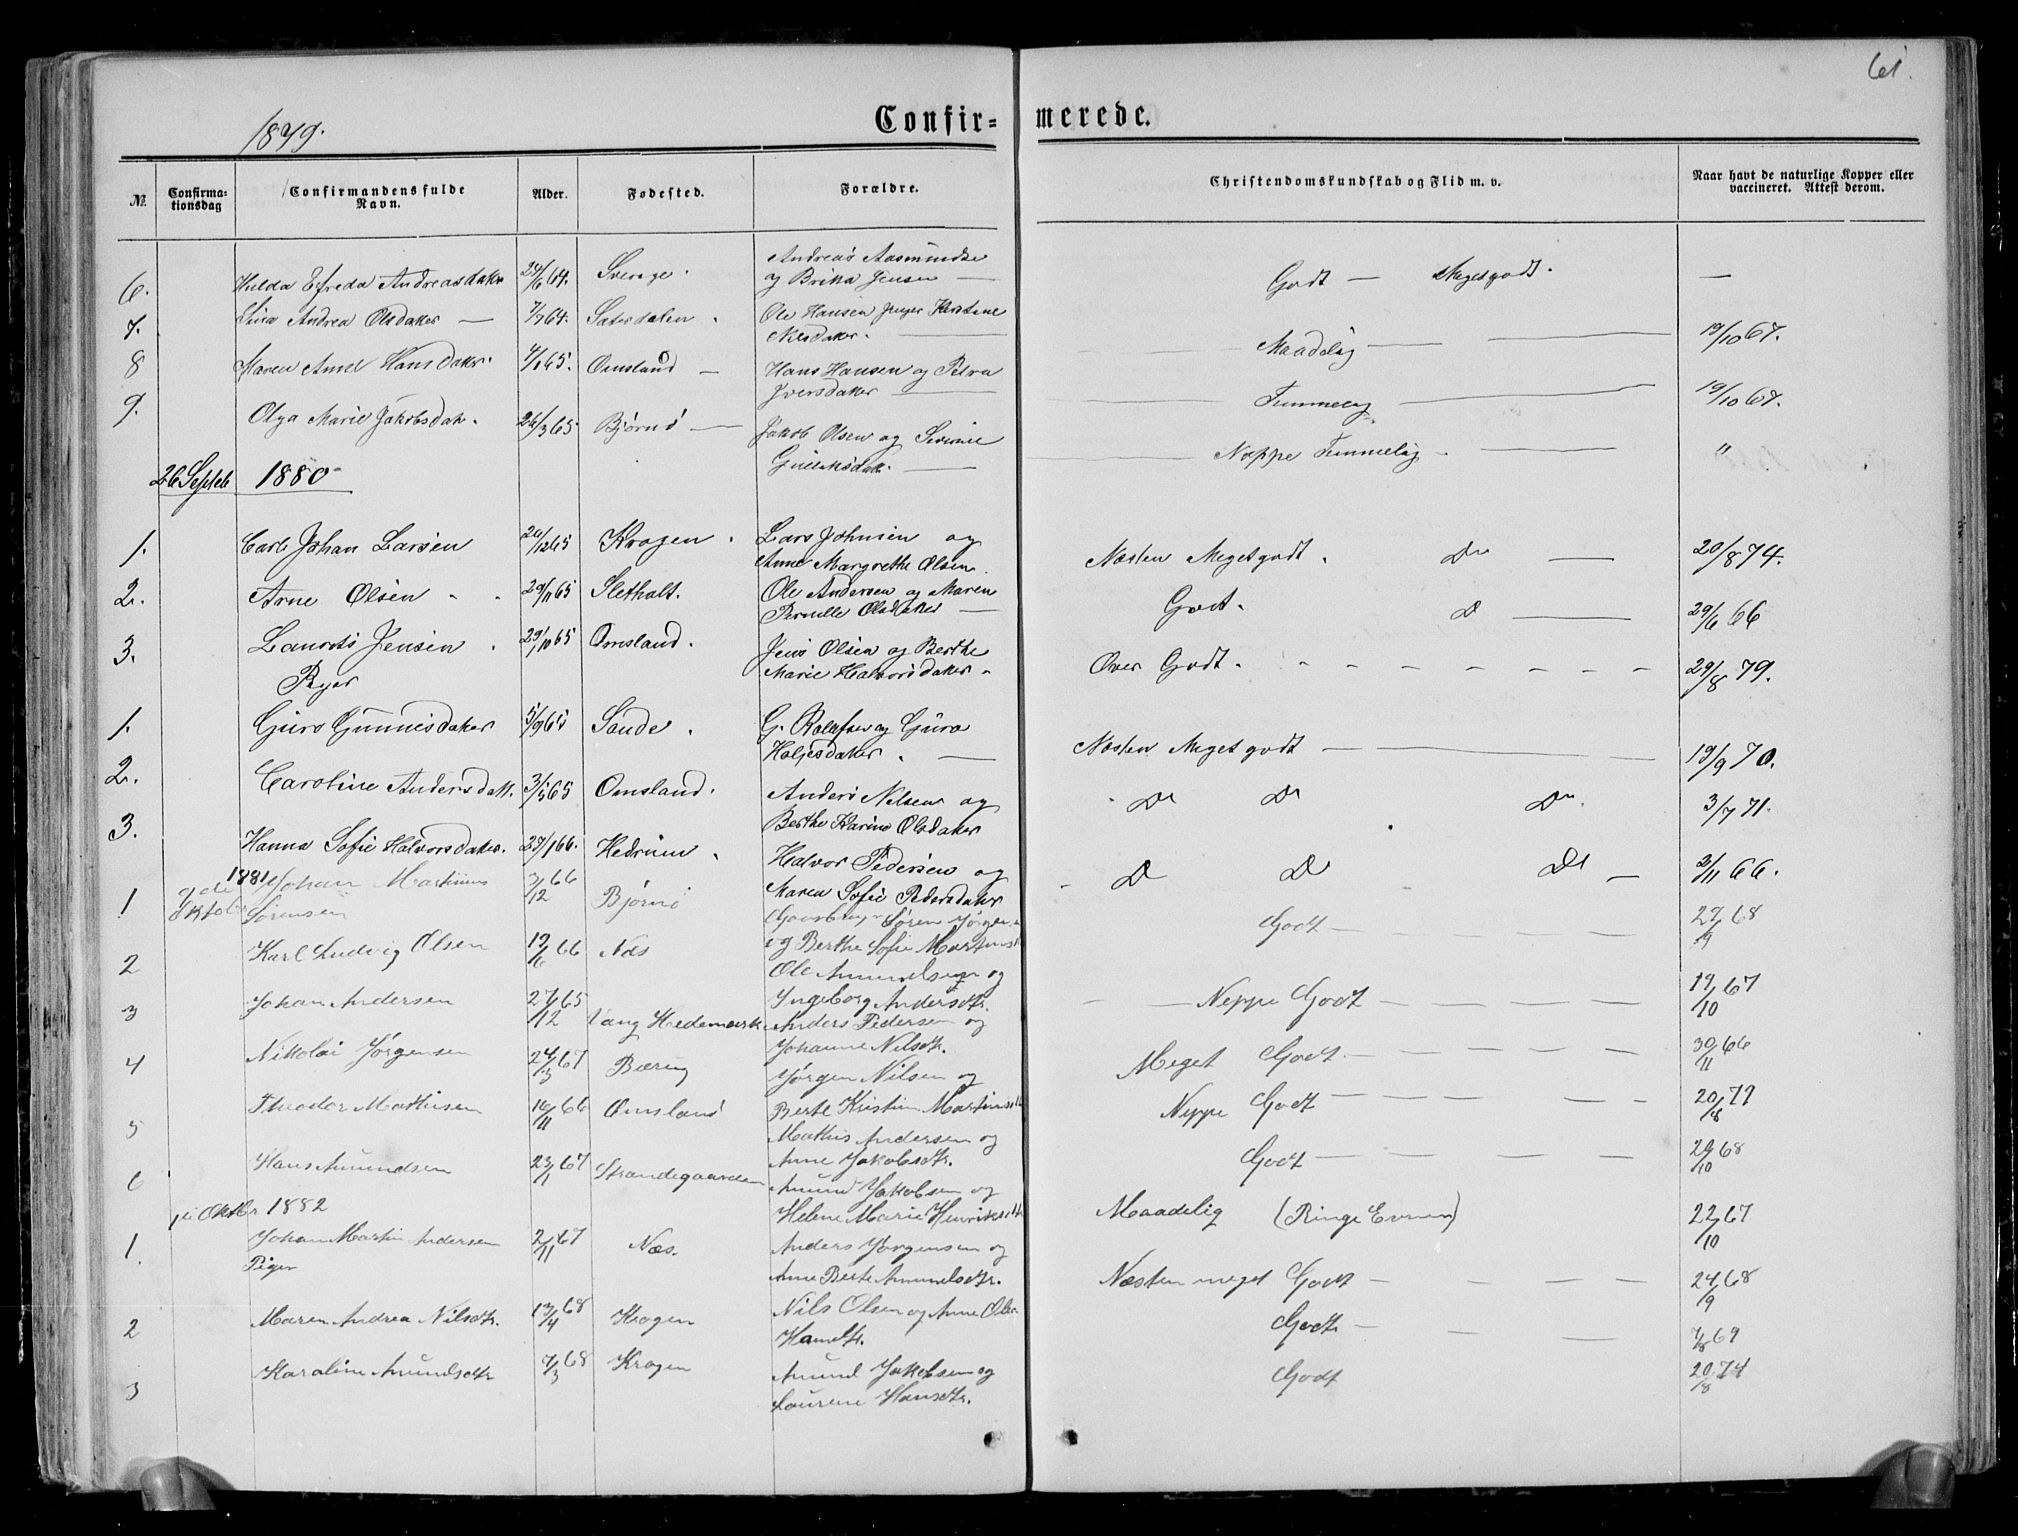 61.
1879.
Confir= merede.
No. Confirma-tionsdag Confirmandens fulde Navn. Alder. Fødested. Forældre. Christendomskundskab og Flid m. v. Naar havt de naturlige Kopper eller vaccineret. Attest derom.
6. Hulda Efreda Andreasdatter 24/6 64. Sverige. Andreas Aasmundse
og Brita Jensen — Godt — Megetgodt. —
7. Andrea Olsdatter — 7/7 64. Sæterdalen. Ole Hansen Kirstine
Nilsdatter. Maadelig 19/10 67.
8 Maren Anne Hansdatter. 4/1 65. Omsland — Hans Hansen og Petra
Iversdatter Temmelig 19/10 67.
9. Olga Marie Jakobsdatr. 26/3 65 Bjørnø — Jakob Olsen og Severine
Næppe Temmelig "
26 Septb 1880
1. Carl Johan Larsen 26/12 65 Krogen. Lars Johnsen og
Anne Margrethe Olsen. Næsten Megetgodt. Do — 20/8 74.
2. Arne Olsen 29/11 65 Sletholt. Ole Andersen og Maren
Pernille Olsdatter Godt. D 29/6 66
3. Laurits Jensen 29/10 65 Omsland. Jens Olsen og Berthe
Piger Marie Halvorsdatter Over Godt. 29/8 79.
1. Guro Gunnesdatter 5/9 65 Sande. G. Rolefsen og Guro
Holjesdatter. Næsten Megetgodt 19/9 70.
2. Caroline Andersdatt. 3/5 65 Omsland. Anders Nilsen og
Berthe Karine Olsdatter Do Do Do 3/7 71.
3. Hanna Sofie Halvorsdatter. 29/1 66. Hedrum. Halvor Pedersen og
Maren Sofie Pedersdatter D D D 2/11 66.
1881
1 9de Oktobr Johan Martinius
Sørensen 3/12 66 Bjørnø Søren Jørgens.
og Berthe Sofie Martinsdt Godt 27/9 68
2 Karl Ludvig Olsen 19/6 66 Næs Ole Amundsen og
Ingeborg Andersdtr. Neppe Godt 19/10 67
3 Johan Andersen 27/12 65 Vang Hedemark Anders Pedersen og
Johanne Nilsdtr. Meget Godt 30/11 66
4 Nikolai Jørgensen 24/3 67 Bæring Jørgen Nilsen og
Berte Kristin Martinsdt Neppe Godt 20/8 77
5 Theodor Mathisen 16/11 66 Omsland Mathis Andersen og
Anne Jakobsdtr. Godt 29/10 68
6 Hans Amundsen 23/1 67 Strandegaarden Amund Jakobsen og
Helene Marie Henriksdt Maadelig (Ringe Evner) 22/10 67
1ste Oktbr 1882
1. Johan Martin Andersen 2/11 67 Næs. Anders Jørgensen og
Piger Anne Berte Amundsdtr. Næsten meget Godt 24/9 68
2 Maren Andrea Nilsdtr. 13/4 68 Krogen Nils Olsen og Anne Olea
Godt 7/8 69
3 Karoline Amundsdtr 7/3 68 Krogen Amund Jakobsen og
Laurene Hansdtr. Godt 20/8 74